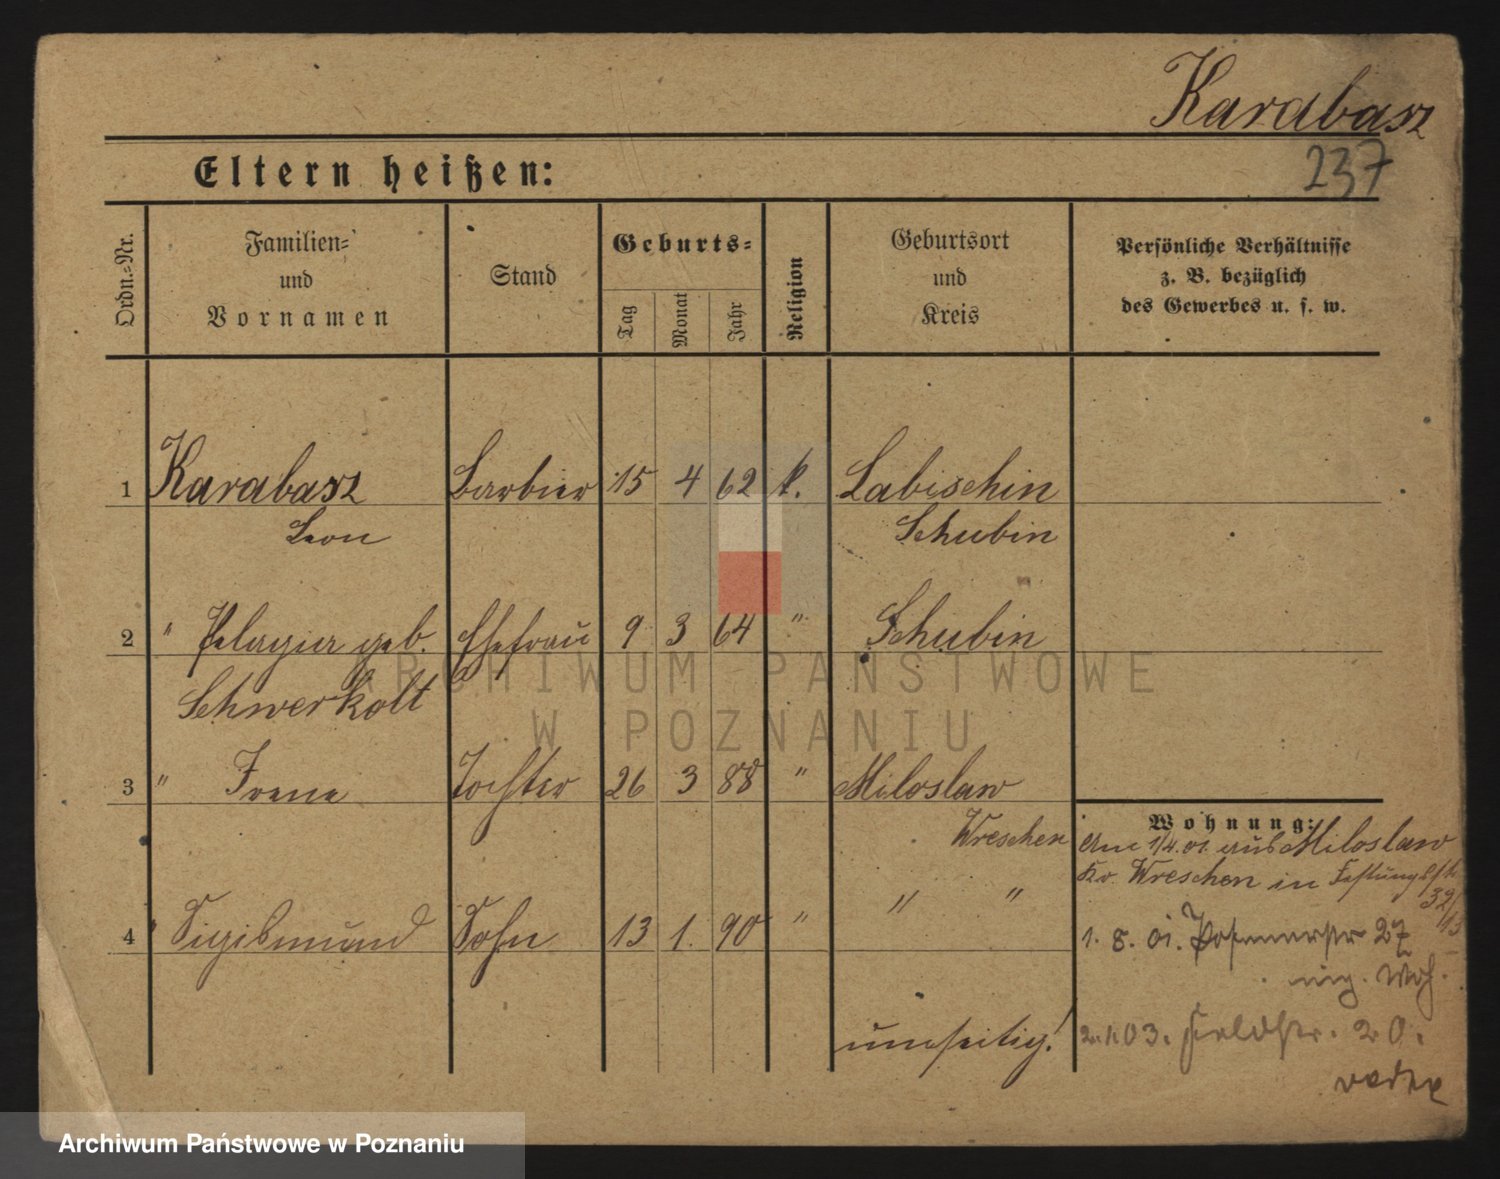 Karabasz
237
Eltern heißen:
Ordn.=Nr.
Familien=
und
Vornamen
Stand
Geburts=
Tag
Monat
Jahr
Religion
Geburtsort
und
Kreis
Persönliche Verhältnisse
z. B. bezüglich
des Gewerbes u. s. w.
1 Karabasz Barbier 15 4 62 k. Labischin
Leon Schubin
2 " Pelagia geb. Ehefrau 9 3 64 " Schubin
Schwerkolt
3 " Irene Tochter 26 3 88 " Miloslaw
Wreschen
4 " Sigismund Sohn 13 1. 90 " " "
umseitig!
Wohnung:
Am 1/4.01. aus Miloslaw
Kr. Wreschen in Festungsstr
32/
13
1. 8. 01. Posenerstr 27
eig. Woh.
2.1.03. Feldstr. 20.
ARCHIWUM PAŃSTWOWE
W POZNANIU
Archiwum Państwowe w Poznaniu